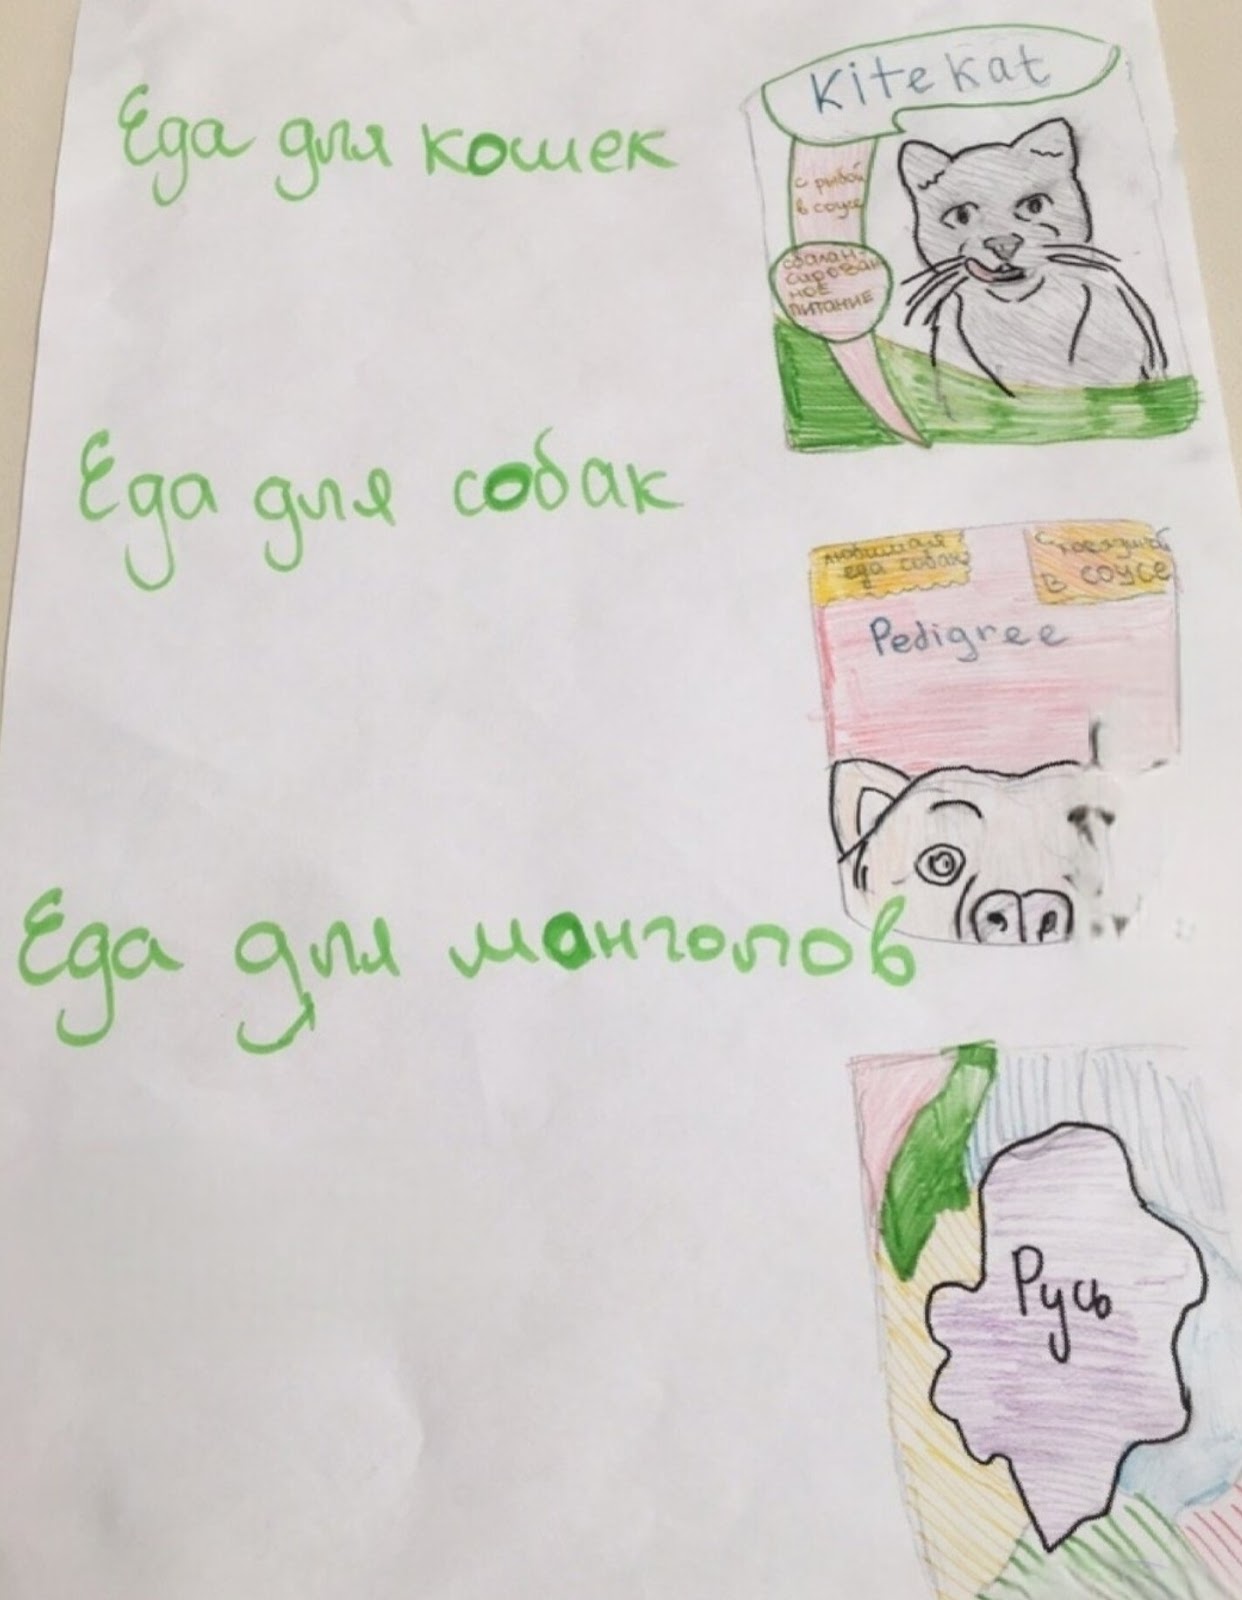 Kitekat
Еда для кошек
с рыбой
в соусе
сбалан-
сирован
ное
питание
Еда для собак
любимая
еда собак
с говядиной
в соусе
Pedigree
Еда для монголов
Русь